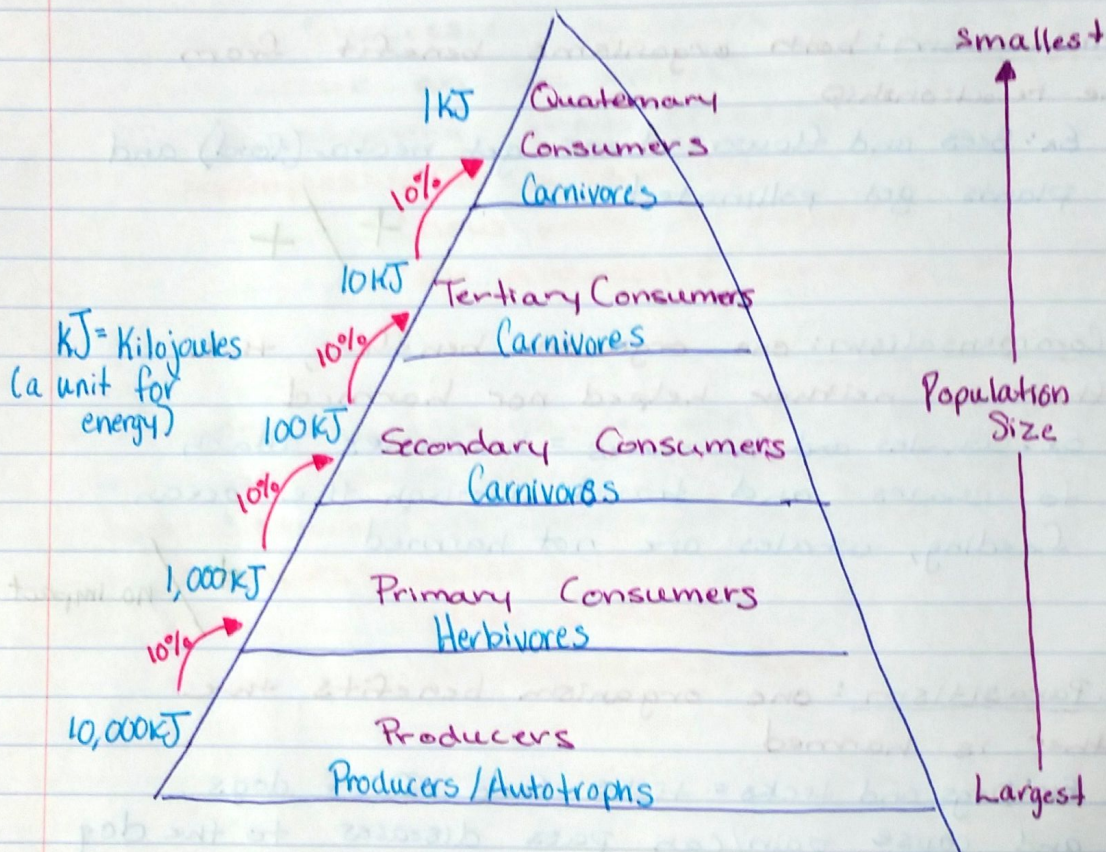 Smallest
1KJ
Quaternary
Consumers
Carnivores
10%
10KJ
Tertiary Consumers
Carnivores
10%
KJ= Kilojoules
(a unit for
energy)
100KJ
Secondary Consumers
Carnivores
10%
Population
Size
1,000KJ
Primary Consumers
Herbivores
10%
10,000KJ
Producers
Producers/Autotrophs
Largest